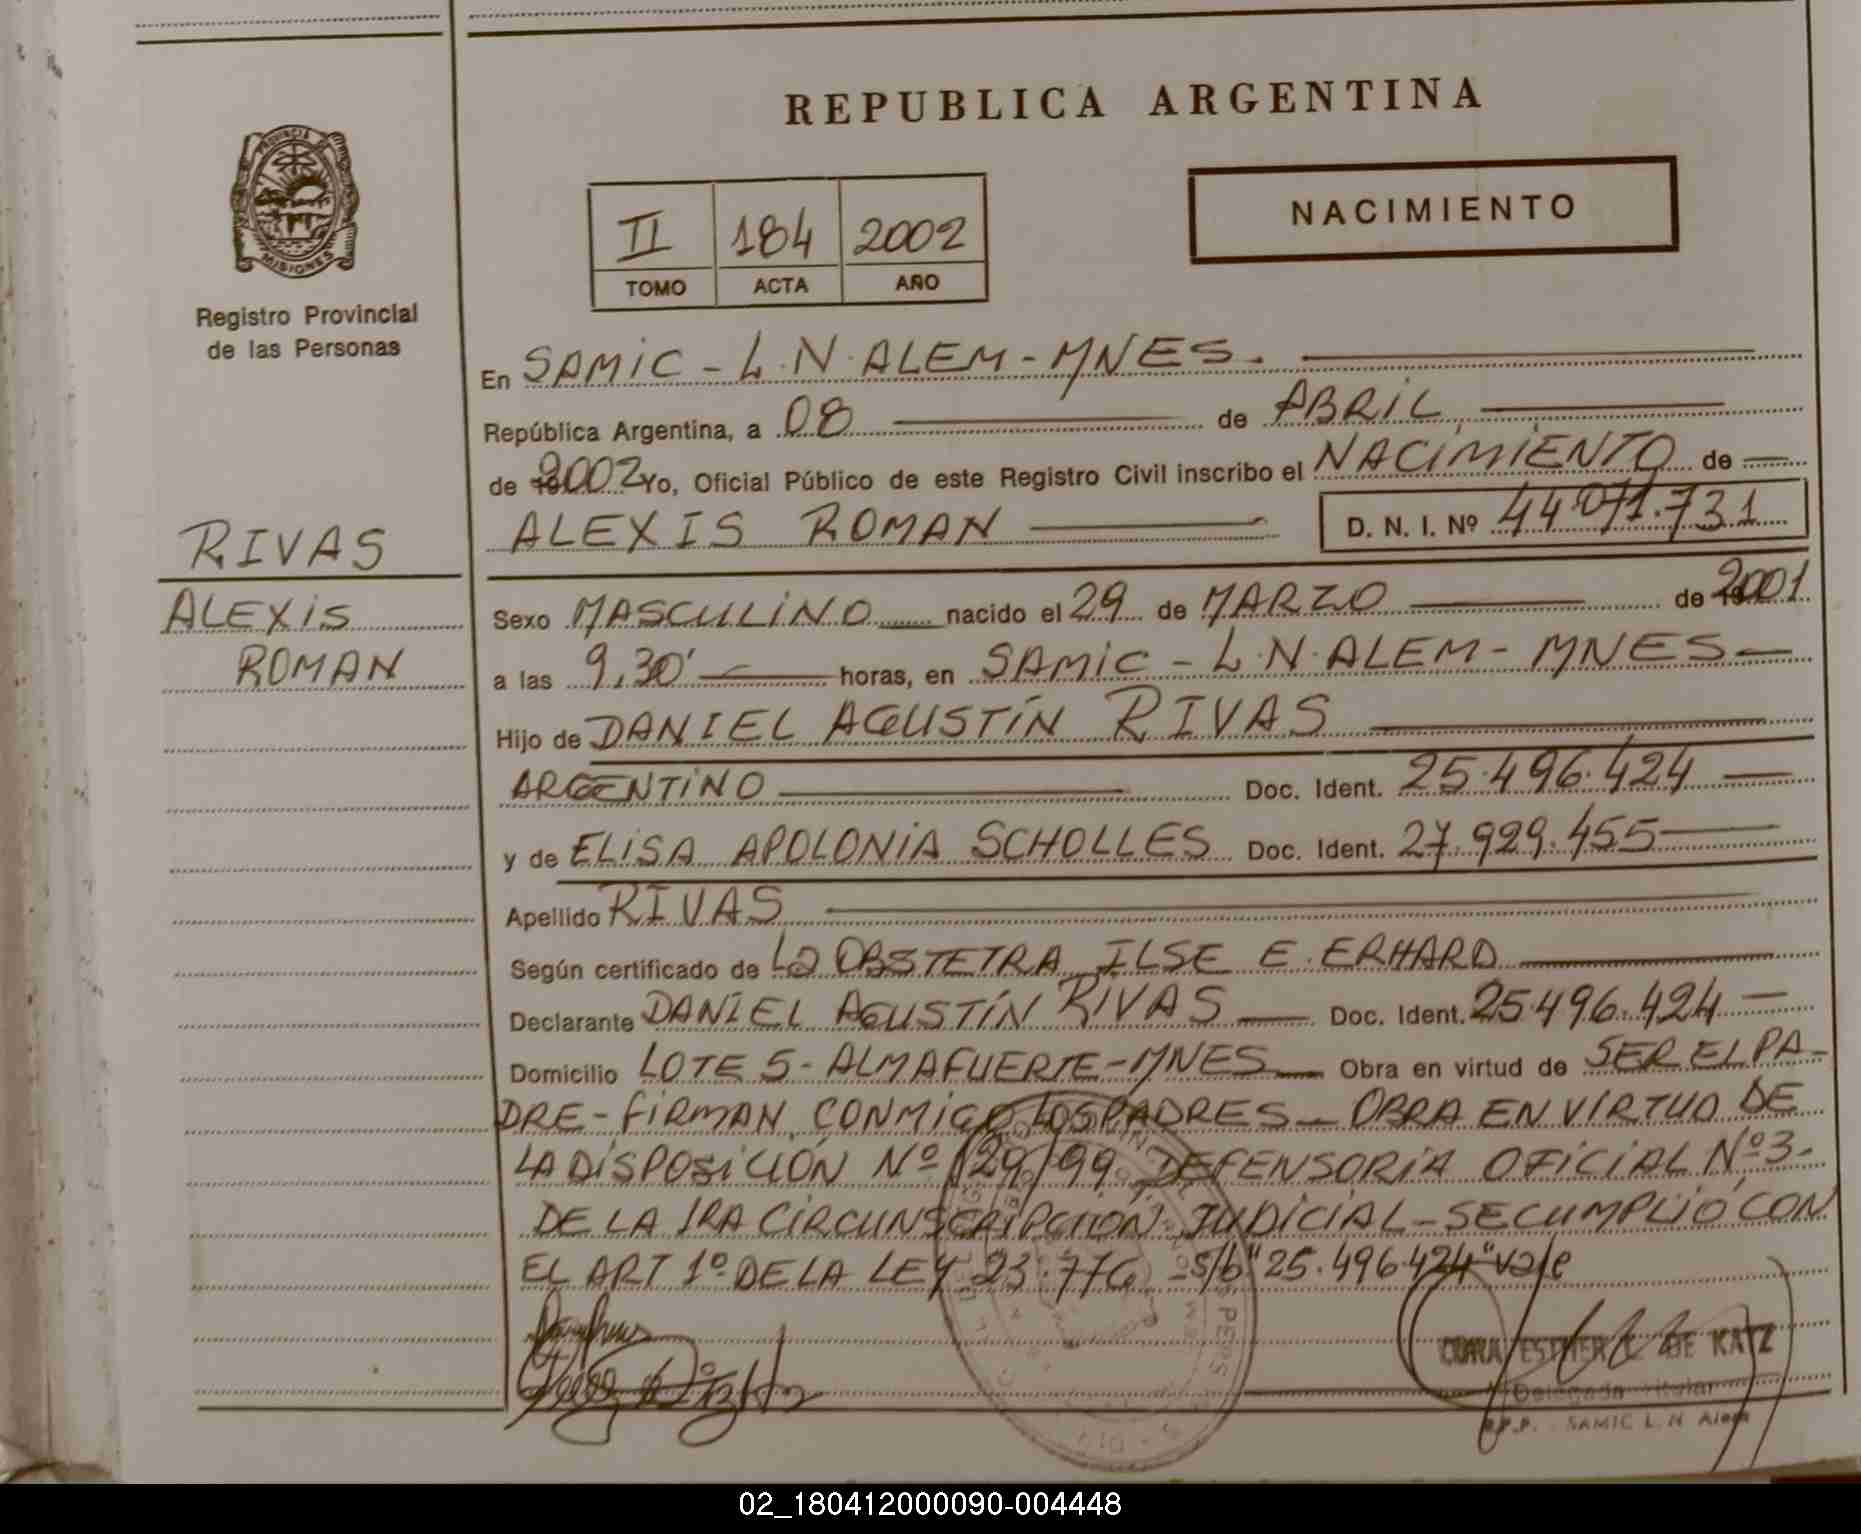 REPUBLICA ARGENTINA
PROVINCIA DE
MISIONES
Registro Provincial
de las Personas
NACIMIENTO
II 184 2002
TOMO ACTA AÑO
En SAMIC - L.N. ALEM - MNES.
República Argentina, a 08 de ABRIL
de 2002 Yo, Oficial Público de este Registro Civil inscribo el NACIMIENTO de
ALEXIS ROMAN D. N. I. Nº 44.071.731
RIVAS
ALEXIS
ROMAN
Sexo MASCULINO nacido el 29 de MARZO de 2001
a las 9,30' horas, en SAMIC - L.N. ALEM - MNES
Hijo de DANIEL AGUSTÍN RIVAS
ARGENTINO Doc. Ident. 25.496.424
y de ELISA APOLONIA SCHOLLES Doc. Ident. 27.929.455
Apellido RIVAS
Según certificado de La OBSTETRA ILSE E. ERHARD
Declarante DANIEL AGUSTÍN RIVAS Doc. Ident. 25.496.424
Domicilio LOTE 5 - ALMAFUERTE - MNES Obra en virtud de SER EL PA-
DRE - FIRMAN CONMIGO LOS PADRES - OBRA EN VIRTUD DE
LA DISPOSICIÓN Nº 129/99 DEFENSORIA OFICIAL Nº 3-
DE LA 1RA CIRCUNSCRIPCIÓN JUDICIAL - SE CUMPLIÓ CON
EL ART 1º DE LA LEY 23.776 - s/b "25.496.424" vale
ESTHER DE KATZ
Delegada Titular
R.P.P. SAMIC L.N Alem
02_180412000090-004448